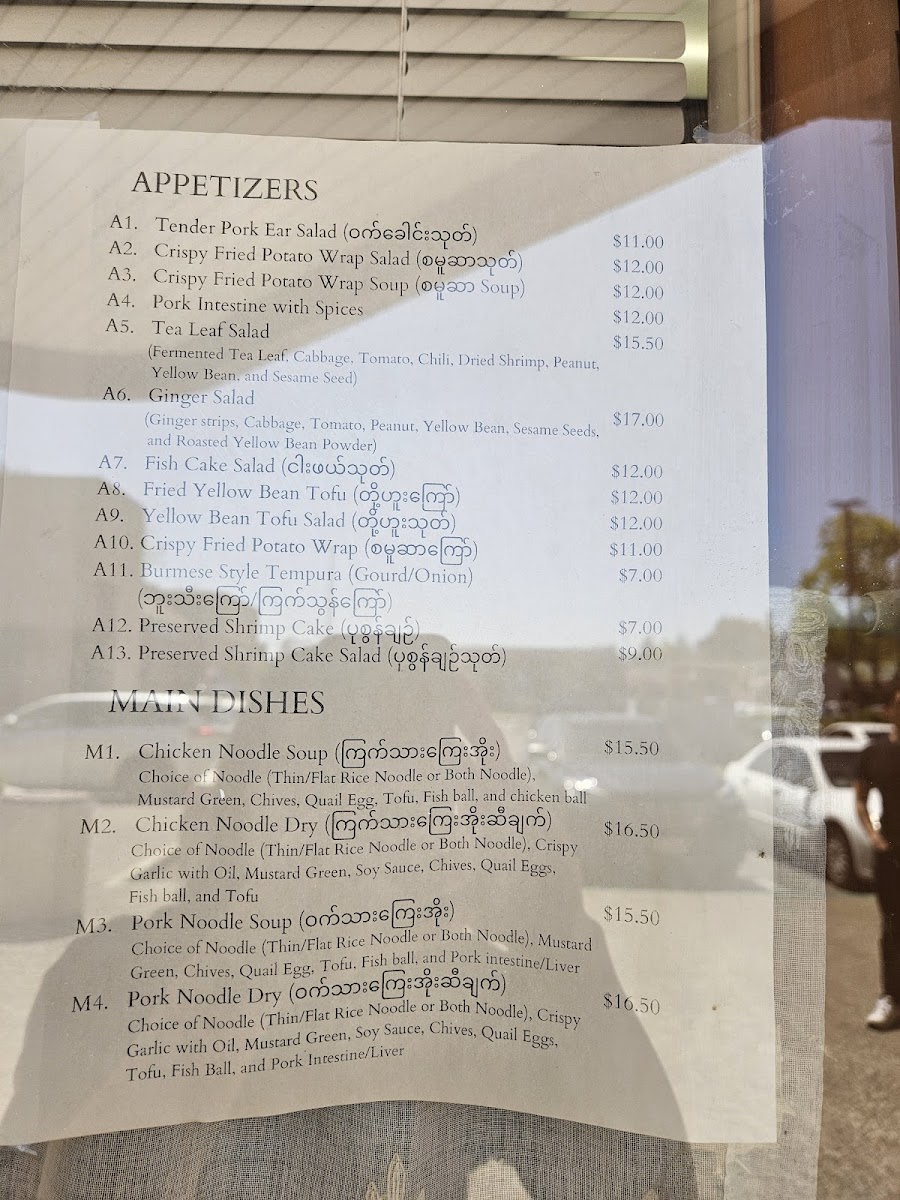 APPETIZERS
A1. Tender Pork Ear Salad (ဝက်ခေါင်းသုတ်) $11.00
A2. Crispy Fried Potato Wrap Salad (စမူဆာသုတ်) $12.00
A3. Crispy Fried Potato Wrap Soup (စမူဆာ Soup) $12.00
A4. Pork Intestine with Spices $12.00
A5. Tea Leaf Salad $15.50
(Fermented Tea Leaf, Cabbage, Tomato, Chili, Dried Shrimp, Peanut,
Yellow Bean, and Sesame Seed)
A6. Ginger Salad $17.00
(Ginger strips, Cabbage, Tomato, Peanut, Yellow Bean, Sesame Seeds,
and Roasted Yellow Bean Powder)
A7. Fish Cake Salad (ငါးဖယ်သုတ်) $12.00
A8. Fried Yellow Bean Tofu (တို့ဟူးကြော်) $12.00
A9. Yellow Bean Tofu Salad (တို့ဟူးသုတ်) $12.00
A10. Crispy Fried Potato Wrap (စမူဆာကြော်) $11.00
A11. Burmese Style Tempura (Gourd/Onion) $7.00
(ဘူးသီးကြော်/ကြက်သွန်ကြော်)
A12. Preserved Shrimp Cake (ပုစွန်ချဉ်) $7.00
A13. Preserved Shrimp Cake Salad (ပုစွန်ချဉ်သုတ်) $9.00
MAIN DISHES
M1. Chicken Noodle Soup (ကြက်သားကြေးအိုး) $15.50
Choice of Noodle (Thin/Flat Rice Noodle or Both Noodle),
Mustard Green, Chives, Quail Egg, Tofu, Fish ball, and chicken ball
M2. Chicken Noodle Dry (ကြက်သားကြေးအိုးဆီချက်) $16.50
Choice of Noodle (Thin/Flat Rice Noodle or Both Noodle), Crispy
Garlic with Oil, Mustard Green, Soy Sauce, Chives, Quail Eggs,
Fish ball, and Tofu
M3. Pork Noodle Soup (ဝက်သားကြေးအိုး) $15.50
Choice of Noodle (Thin/Flat Rice Noodle or Both Noodle), Mustard
Green, Chives, Quail Egg, Tofu, Fish ball, and Pork intestine/Liver
M4. Pork Noodle Dry (ဝက်သားကြေးအိုးဆီချက်) $16.50
Choice of Noodle (Thin/Flat Rice Noodle or Both Noodle), Crispy
Garlic with Oil, Mustard Green, Soy Sauce, Chives, Quail Eggs,
Tofu, Fish Ball, and Pork Intestine/Liver